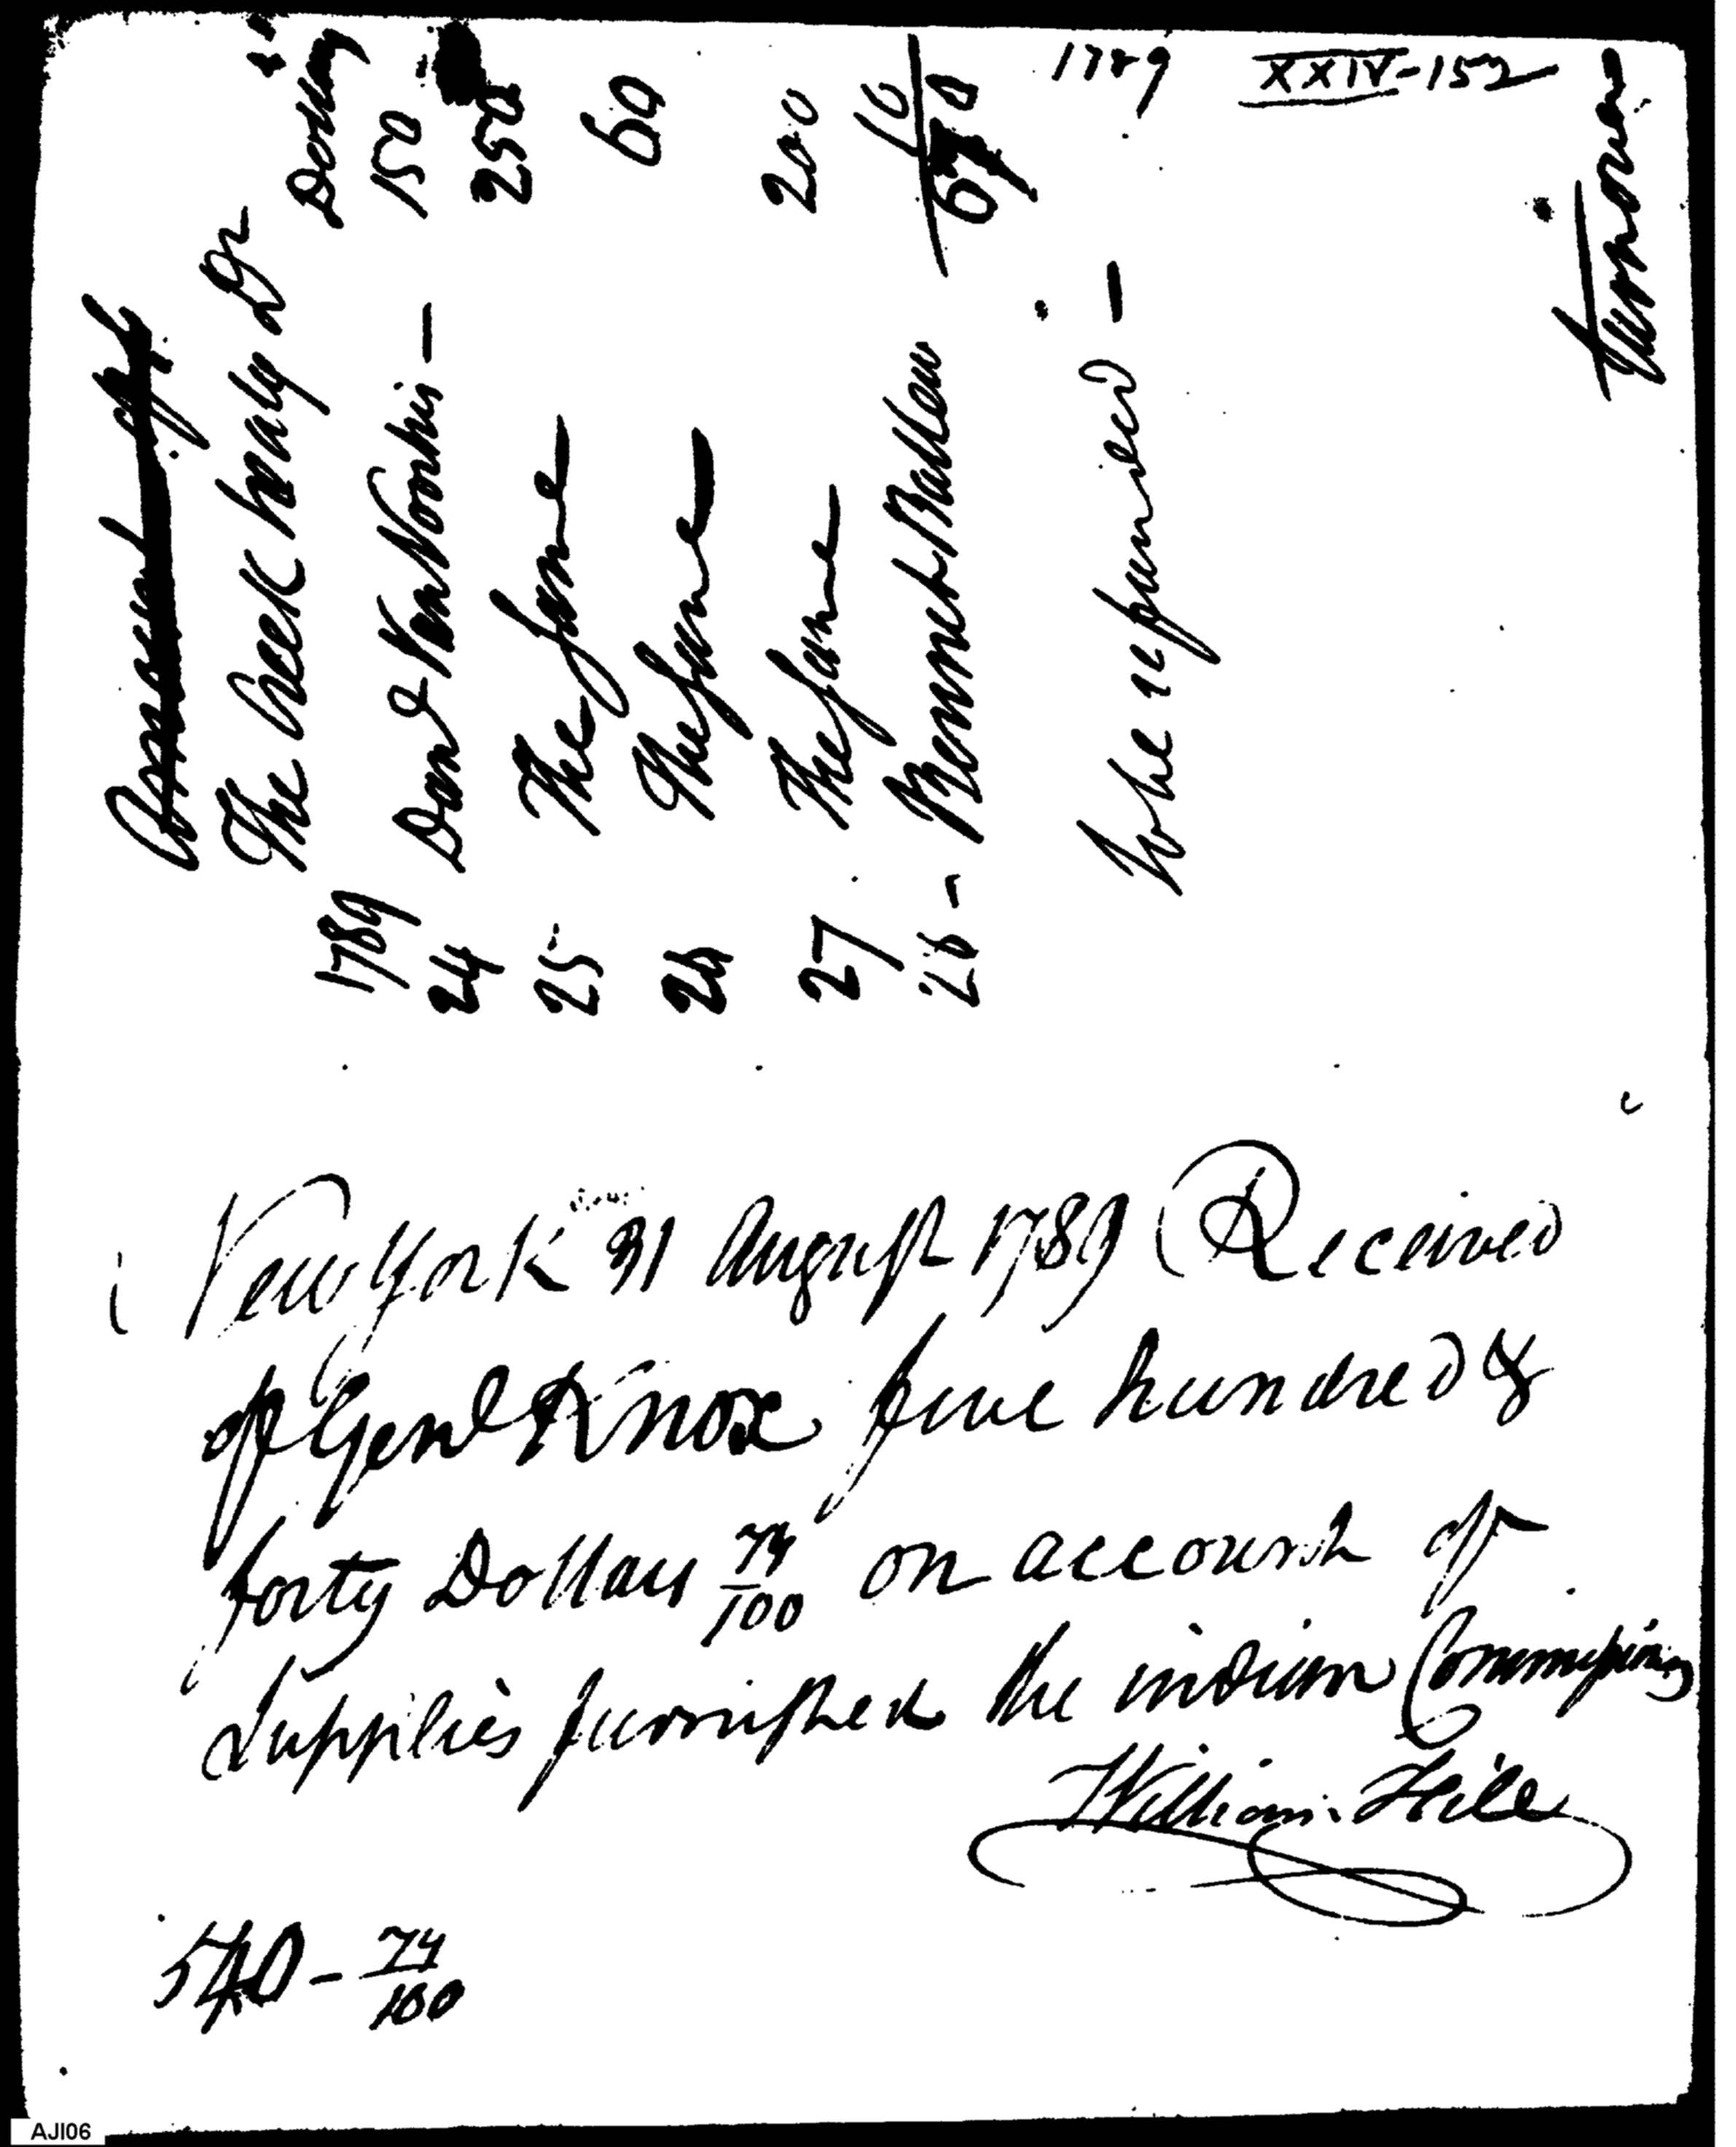 1789 XXIV-152
The Creek Treaty Dr
1789
24 Dan & Van Voorhis — 150
25 The Same — 250
26 The Same — 60
27 The Same 200
28 - Bennet Ballew 10
670
to be refunded —
New York 31 August 1789 Received
of Genl Knox five hundred &
forty Dollars 74/100 on account of
Supplies furnished the indian Commissions
William Hill
540 - 74/100
AJI06